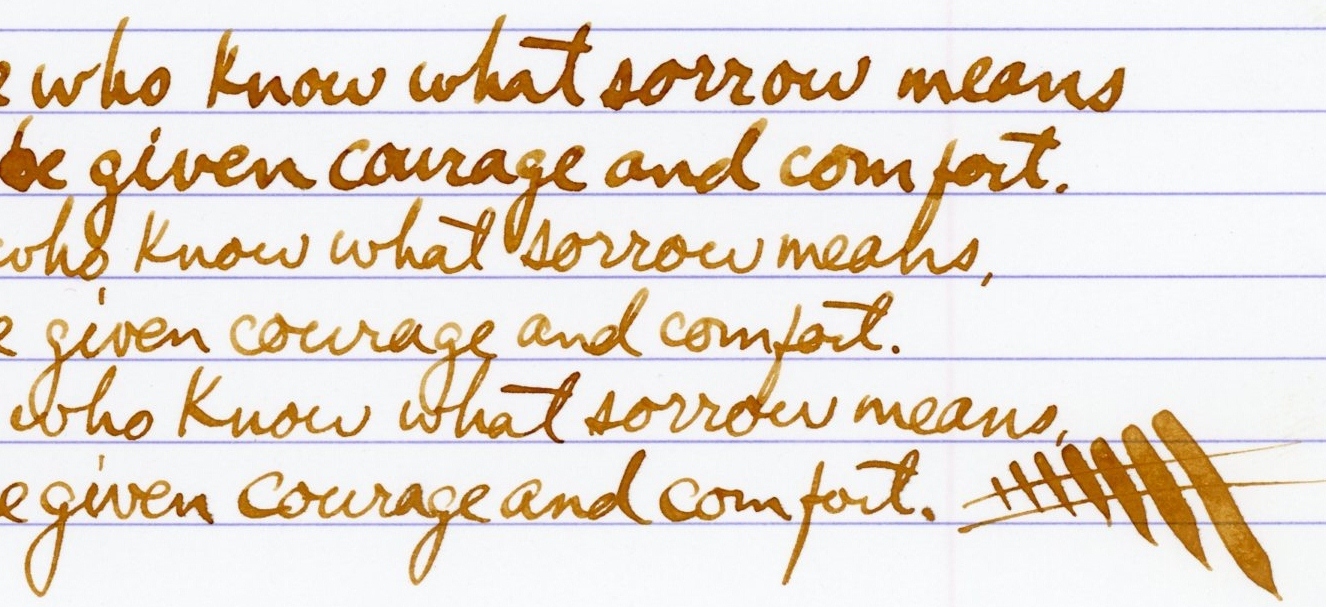 e who know what sorrow means
be given courage and comfort.
who know what sorrow means,
e given courage and comfort.
who know what sorrow means,
e given courage and comfort.